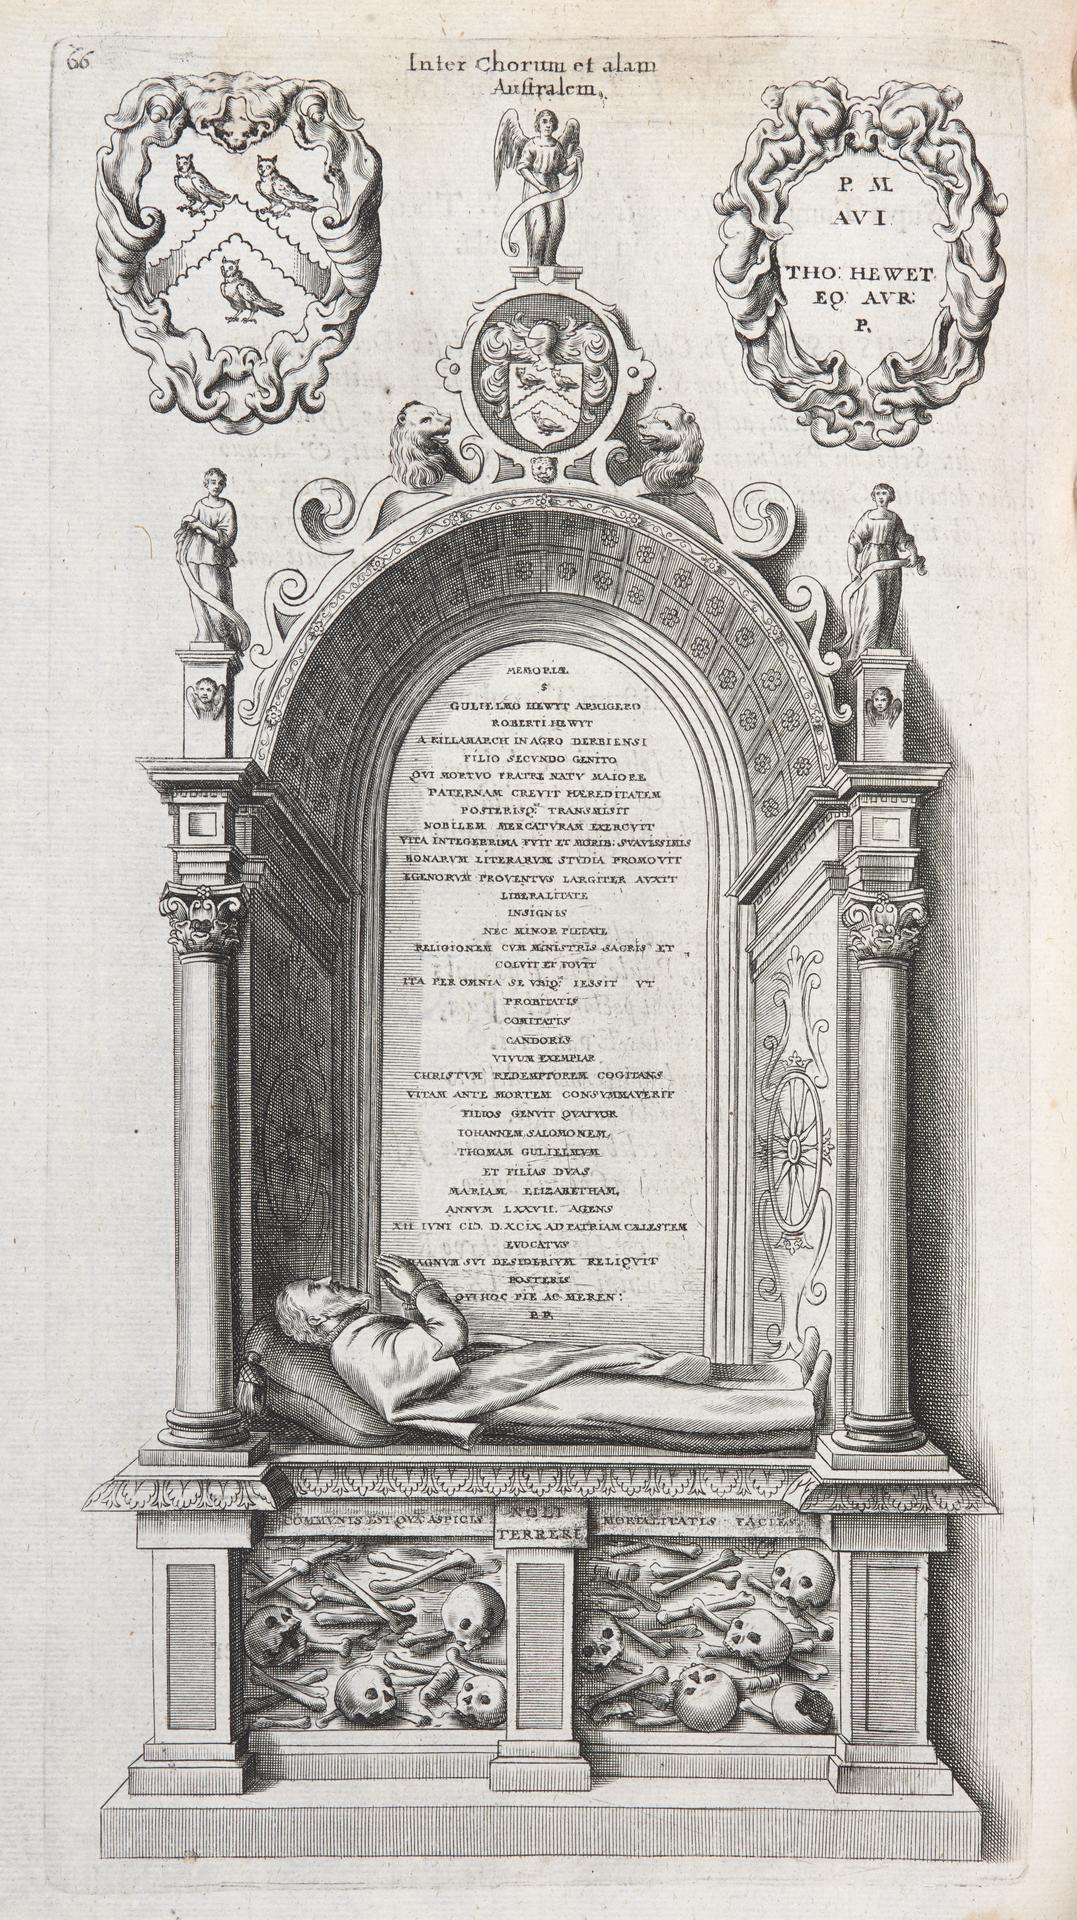 66
Inter Chorum et alam
Australem,
P. M
AVI
THO: HEWET.
EQ: AVR:
P.
MEMORIÆ
S
GULIELMO HEWYT ARMIGERO
ROBERTI HEWYT
A KILLAMARCH IN AGRO DERBIENSI
FILIO SECVNDO GENITO
QVI MORTVO FRATRE NATV MAIORE
PATERNAM CREVIT HÆREDITATEM
POSTERISQ: TRANSMISIT
NOBILEM MERCATVRAM EXERCVIT
VITA INTEGERRIMA FVIT ET MORIB: SVAVISSIMIS
BONARVM LITERARVM STVDIA PROMOVIT
EGENORVM PROVENTVS LARGITER AVXIT
LIBERALITATE
INSIGNIS
NEC MINOR PIETATE
RELIGIONEM CVM MINISTRIS SACRIS ET
COLVIT ET FOVIT
ITA PER OMNIA SE VBIQ: IESSIT VT
PROBITATIS
COMITATIS
CANDORIS
VIVUM EXEMPLAR
CHRISTVM REDEMPTOREM COGITANS
VITAM ANTE MORTEM CONSVMMAVERIT
FILIOS GENVIT QVATVOR
IOHANNEM, SALOMONEM,
THOMAM GULIELMVM
ET FILIAS DVAS
MARIAM ELIZABETHAM,
ANNVM LXXVII. AGENS
XII IVNI CIƆ. D.XCIX AD PATRIAM CÆLESTEM
EVOCATVS
MAGNVM SVI DESIDERIVM RELIQVIT
POSTERIS
QVI HOC PIE AC MEREN:
P. P.
COMMVNIS EST QVÆ ASPICIS
NOLI
TERRERI
MORTALITATIS FACIES